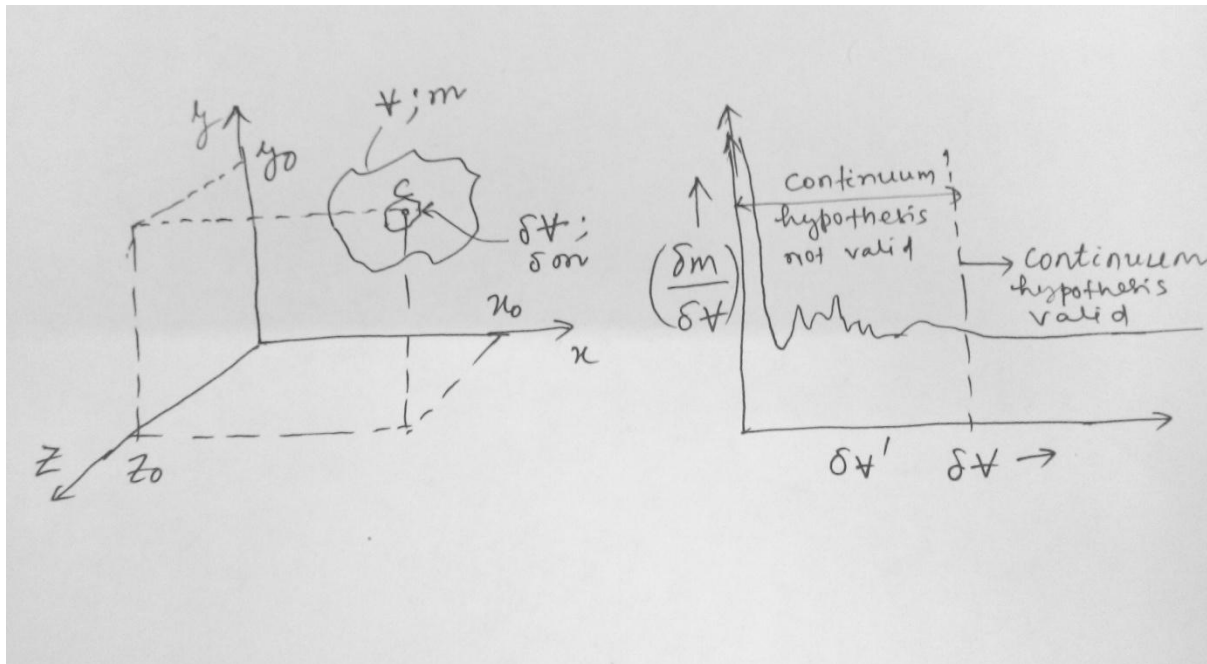 y
y₀
V̶ ; m
C
δV̶ ;
δm
x₀
x
Z
Z₀
(δm/δV̶)
continuum
hypothesis
not valid
continuum
hypothesis
valid
δV̶'
δV̶ →